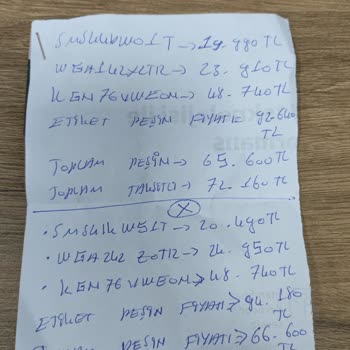 SMS4HKW01T → 19.990 TL
WGA142XZTR → 23.910 TL
KGN76VWE0N → 48.740 TL
ETİKET PEŞİN FİYATI: 92.640 TL
TOPLAM PEŞİN → 65.600 TL
TOPLAM TAKSİTLİ → 72.160 TL
X
• SMS4IKW51T → 20.490 TL
• WGA242Z0TR → 24.950 TL
• KGN76VWE0N → 48.740 TL
ETİKET PEŞİN FİYATI → 94.180 TL
PEŞİN FİYATI → 66.600